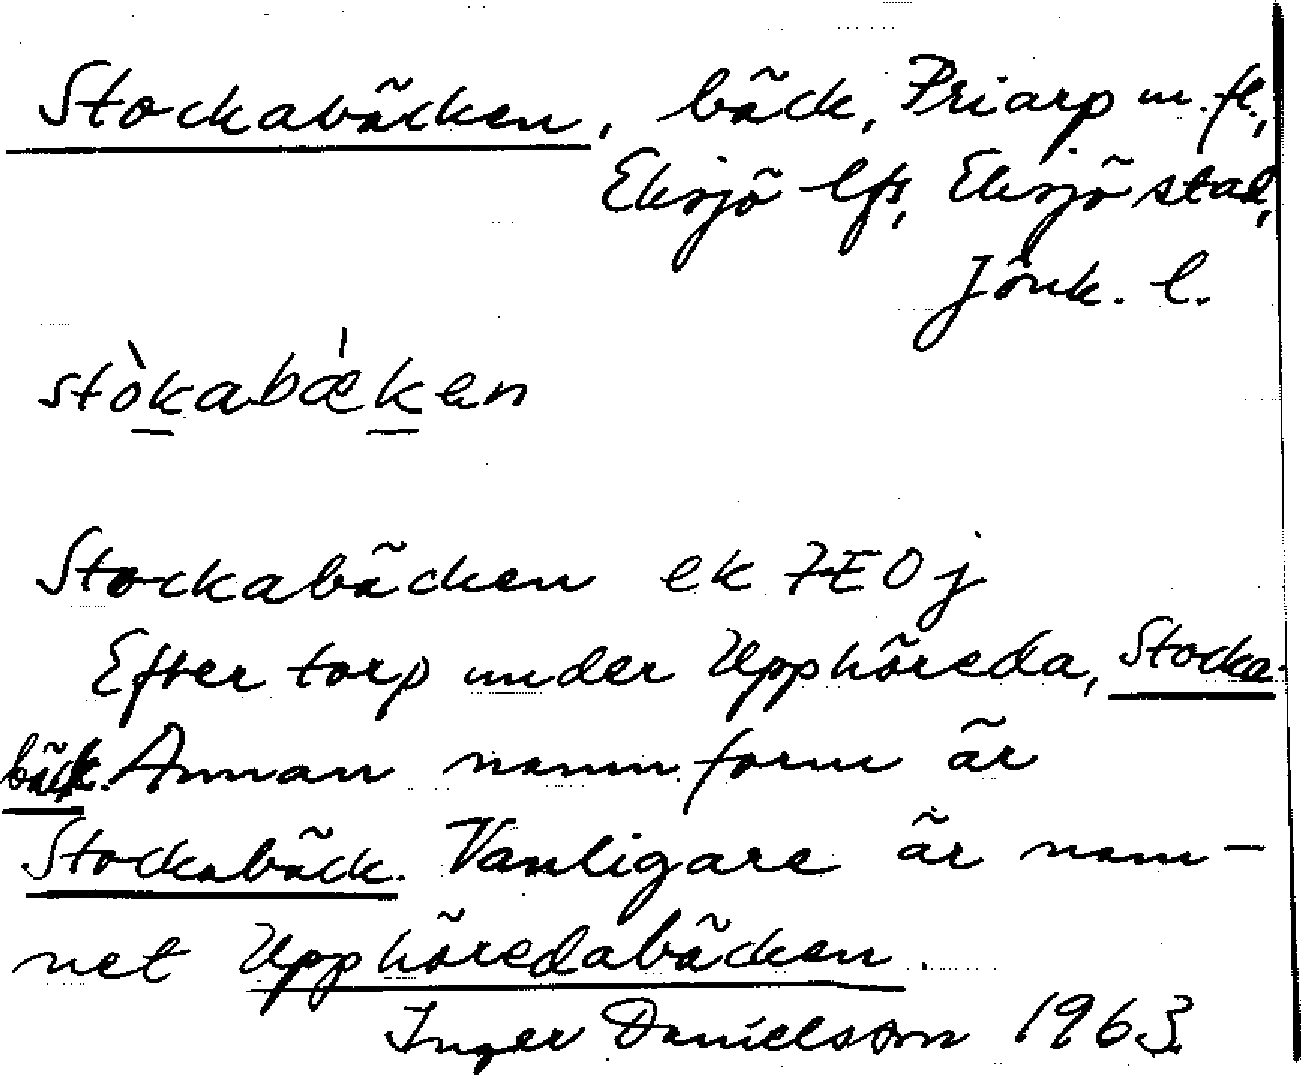 Stockabäcken, bäck, Priarp m.fl.,
Eksjö lfs, Eksjö stad,
Jönk. l.
stòkabǽken
Stockabäcken ek 7E0j
Efter torp under Upphöreda, Stocka-
bäck. Annan namnform är
Stockabäck. Vanligare är nam-
net Upphöredabäcken.
Inger Danielsson 1963